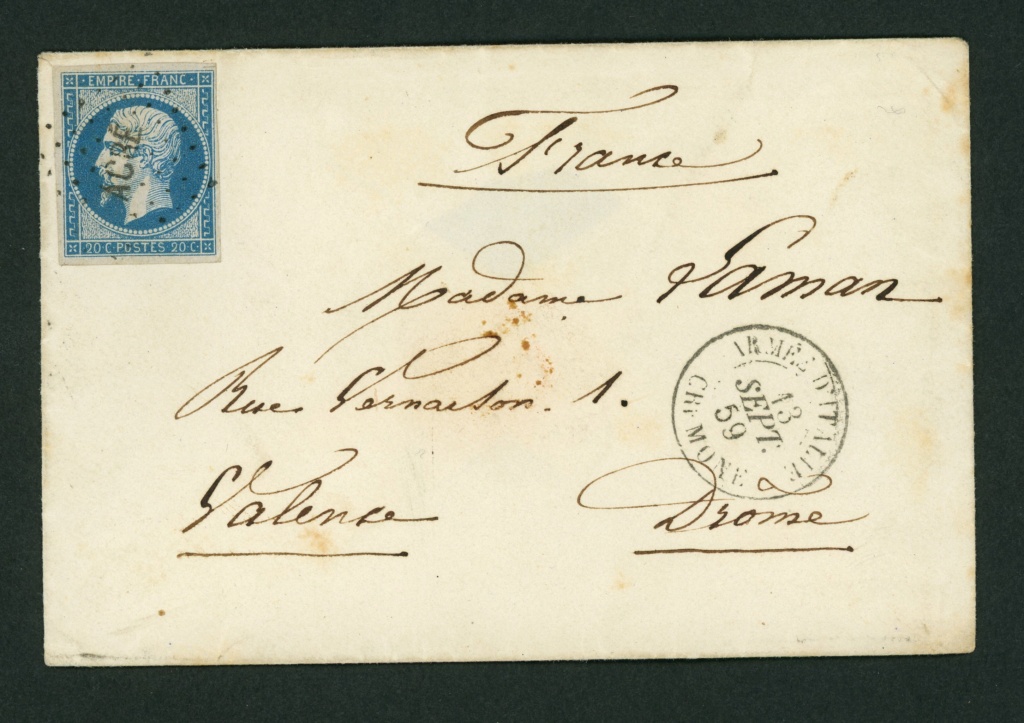 EMPIRE FRANC
ACRE
20·C·POSTES 20·C·
France
Madame Laman
Rue Vernaison. 1.
Valence Drome
ARMÉE D'ITALIE
13
SEPT.
59
CREMONE